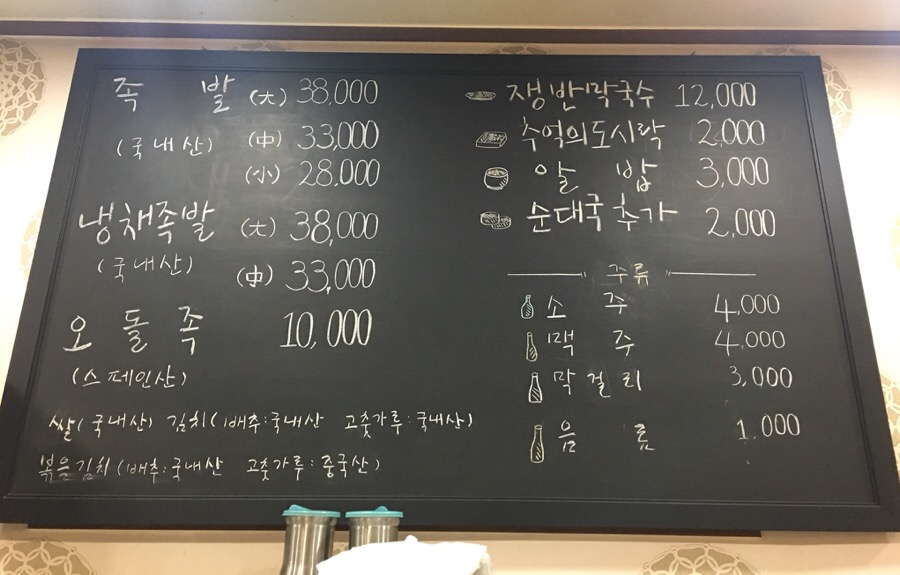 족 발 (大) 38,000
(국내산) (中) 33,000
(小) 28,000
냉채족발 (大) 38,000
(국내산) (中) 33,000
오 돌 족 10,000
(스페인산)
쌀(국내산) 김치(배추:국내산 고춧가루:국내산)
볶음김치(배추:국내산 고춧가루:중국산)
쟁반막국수 12,000
추억의도시락 2,000
알 밥 3,000
순대국 추가 2,000
주류
소 주 4,000
맥 주 4,000
막걸리 3,000
음 료 1,000